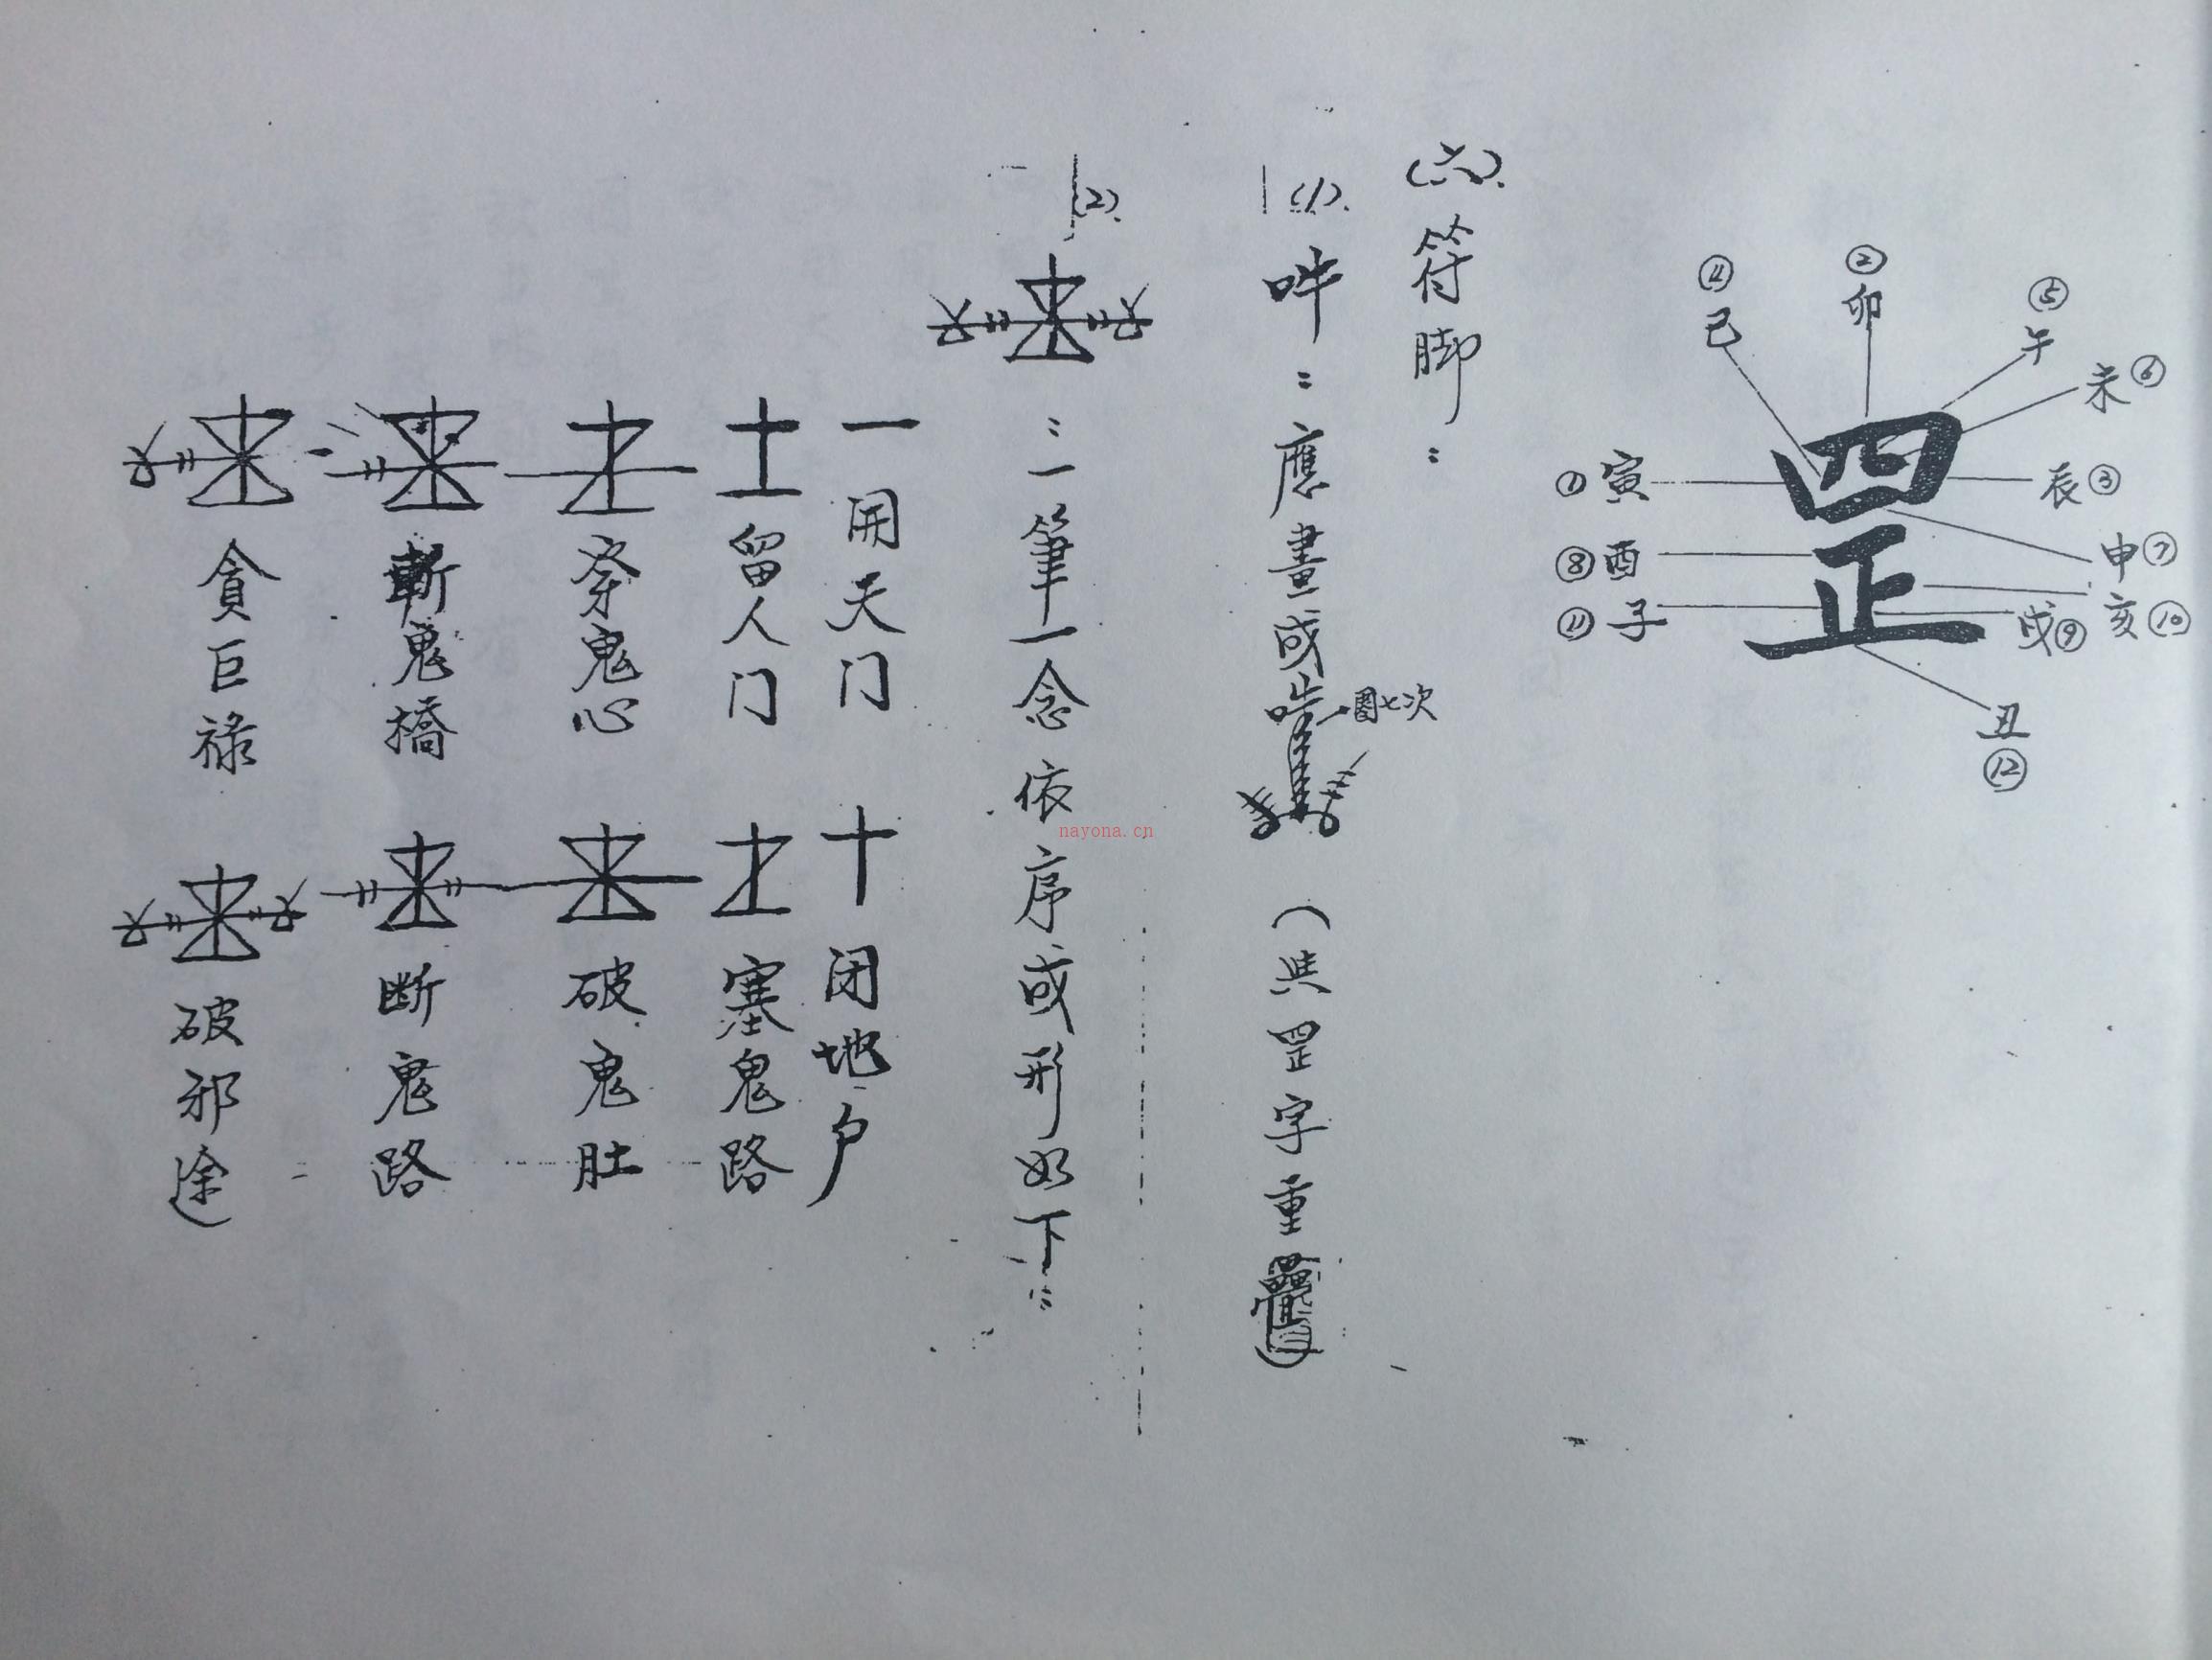 ④巳
②卯
⑤午
未⑥
①寅
辰③
罡
申⑦
⑧酉
亥⑩
戌⑨
⑪子
丑⑫
(六).符脚:
(1).吽:應畫成
圈七次
(共罡字重疊)
(2).
:一筆一念依序成形如下:
一開天门
十闭地户
土留人门
塞鬼路
穿鬼心
破鬼肚
斬鬼橋
断鬼路
貪巨祿
破邪途)
nayona.cn